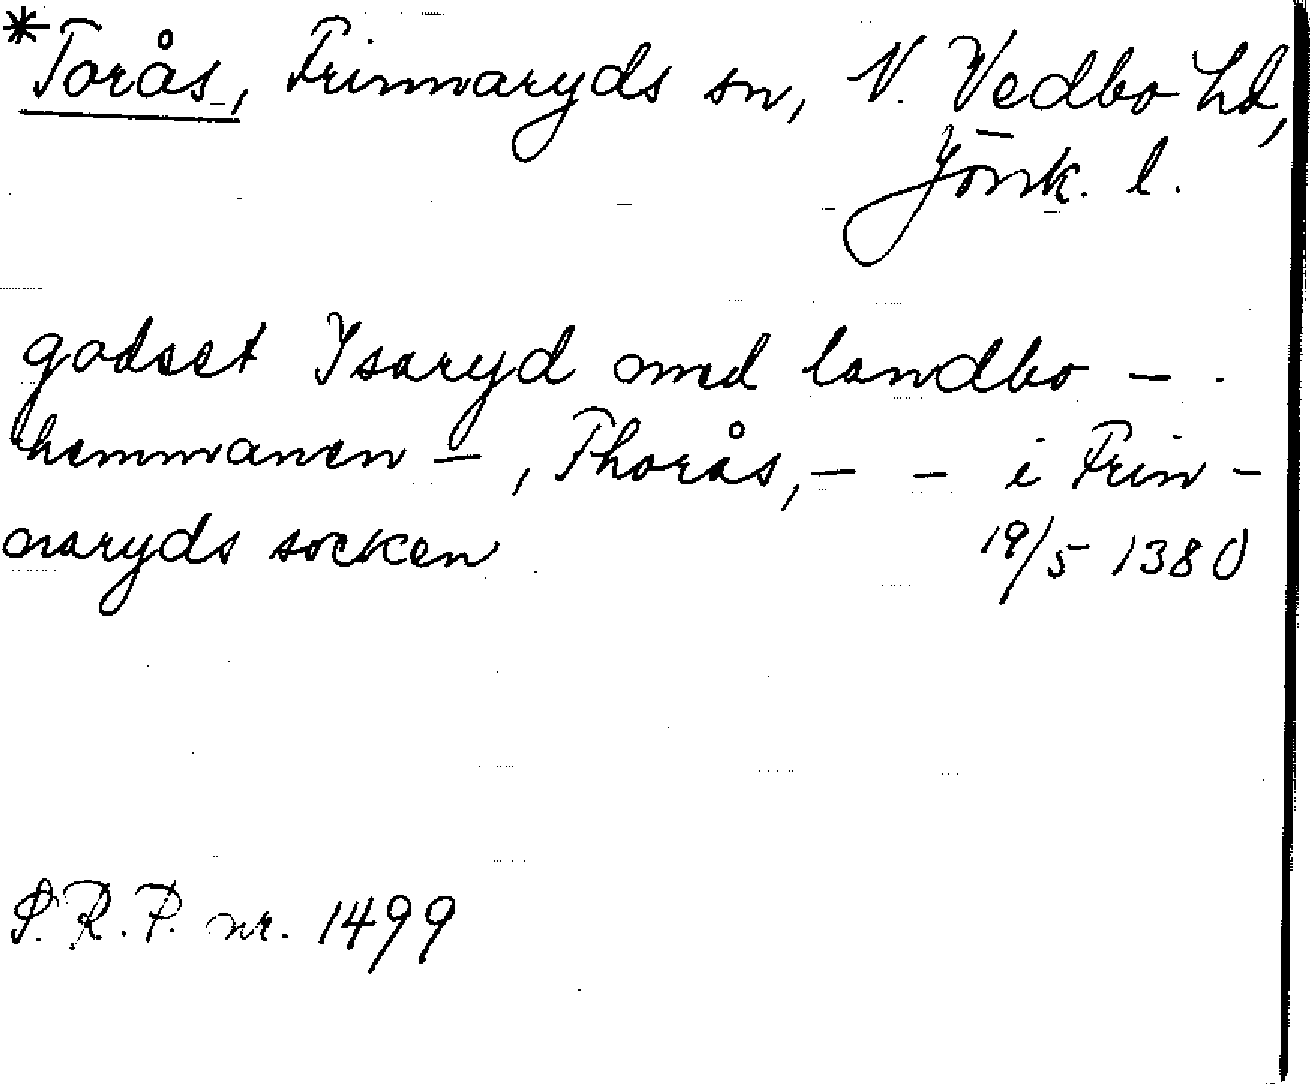 *Torås, Frinnaryds sn, N. Vedbo hd,
Jönk. l.
godset Ysaryd med landbo - -
hemmanen - , Thorås, - - i Frin-
naryds socken 19/5 1380
S.R.P. nr. 1499